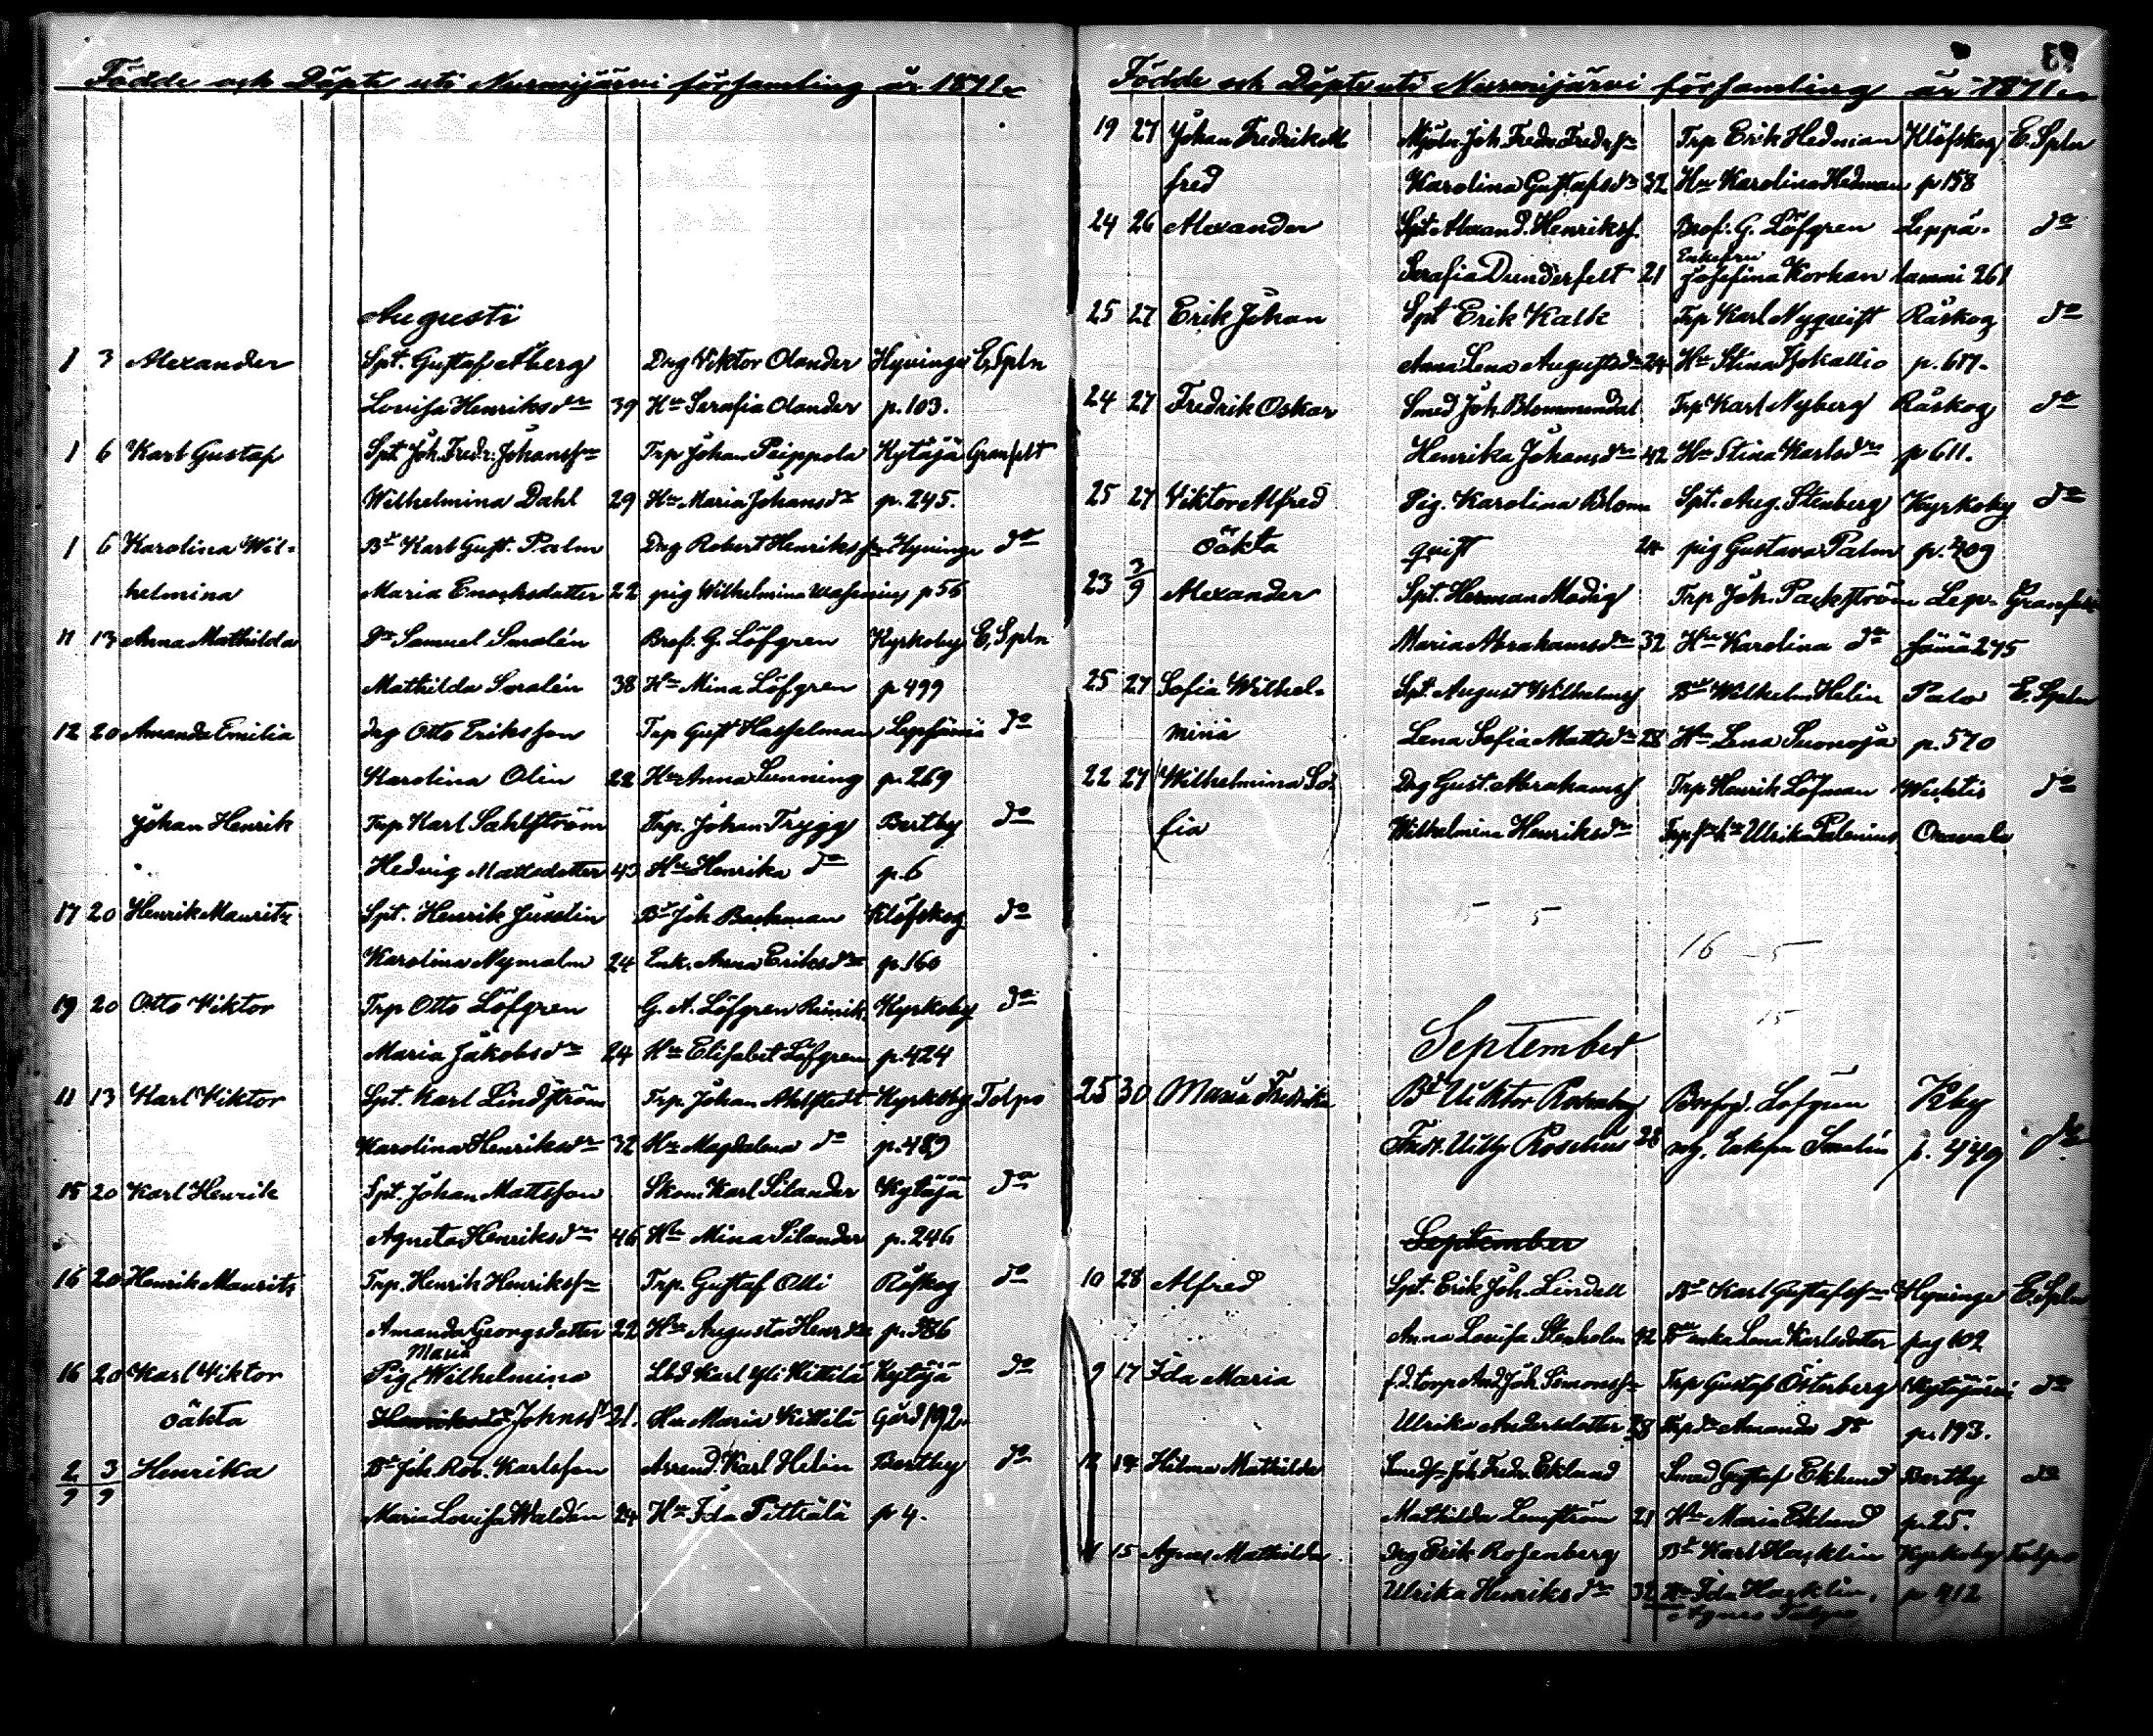 Födde och Döpte uti Nurmijärvi församling år 1871
Augusti
1 3 Alexander Spt. Gustaf Åberg Drg Viktor Olander Hyvinge E. Spln
Lovisa Henriksdr 39 Hu Serafia Olander p. 103.
1 6 Karl Gustaf Spt Joh. Fredr. Johansson Trp Johan Peippola Kytäjä Granfelt
Wilhelmina Dahl 29 Hu Maria Johansdr p. 245.
1 6 Karolina Wil- Bd Karl Gust. Palm Drg Robert Henrikss Hyvinge do
helmina Maria Enocksdotter 22 pig Wilhelmina p 56
11 13 Anna Mathilda Samuel Smalén Brof. G. Löfgren Kyrkoby E. Spln
Mathilda Smalén 38 Hu Mina Löfgren p 499
12 20 Amanda Emilia drg Otto Eriksson Trp Gust Hasselman Lepsämä do
Karolina Olin 22 Hu Anna Sunning p. 269
Johan Henrik Trp Karl Sahlström Trp. Johan Trygg Bertby do
Hedvig Mattsdotter 43 Hu Henrika do p. 6
17 20 Henrik Mauritz Spt. Henrik Jusslin Bd Joh Backman Klöfskog do
Karolina Nymalm 24 Enk. Anna Eriksdr p. 160
19 20 Otto Viktor Trp Otto Löfgren G. A. Löfgren Kyrkoby do
Maria Jakobsdr 24 Hu Elisabet Löfgren p. 424
11 13 Karl Viktor Spt. Karl Lindström Trp Johan Ahlstedt Kyrkoby Tolpo
Karolina Henriksdr 32 Hu Magdalena do p. 489
15 20 Karl Henrik Spt. Johan Mattsson Skom Karl Silander Kytäjä do
Agneta Henriksdr 46 Hu Mina Silander p. 246
16 20 Henrik Mauritz Trp. Henrik Henrikss Trp. Gustaf Olli Råskog do
Amanda Georgsdotter 22 Hu Augusta Henrdr p. 586
Maria
16 20 Karl Viktor Pig Wilhelmina Lbd Karl Yli Kittilä Kytäjä do
oäkta Henriksdr Johnsdr 21. Hu Maria Kittilä Gård 192
2/9 3/9 Henrika Bd Joh. Rob. Karlsson Arrend. Karl Helin Bertby do
Maria Lovisa Waldén 24 Hu Ida Pitkälä p 4.
Födde och Döpte uti Nurmijärvi församling år 1871
19 27 Johan Fredrik Al Mjöln. Joh. Fredr. Fredrss Trp Erik Hedman Klöfskog E. Spln
fred Karolina Gustafsdr 32 Hu Karolina Hedman p 158
24 26 Alexander Spt. Alexand. Henrikss. Brof. G. Löfgren Leppä- do
Serafia Dunderfelt 21 Enkefru Josefina Korhan lammi 261
25 27 Erik Johan Spt Erik Kalk Trp Karl Nyqvist Råskog do
Anna Lena Augustsdr 24 Hu Stina Isokallio p. 617.
24 27 Fredrik Oskar Smed Joh. Blommendal Trp Karl Nyberg Råskog do
Henrika Johansdr 42 Hu Stina Karlsdr p 611.
25 27 Viktor Alfred Pig. Karolina Blom Spt. Aug. Stenberg Kyrkoby do
oäkta qvist 24 pig Gustava Palm p. 409
23 3/9 Alexander Spt. Herman Modig Trp Joh. Packström Lep- Granfelt
Maria Abrahamsdr 32 Hu Karolina do sämä 275
25 27 Sofia Wilhel- Spt. August Wilhelmss Bd Wilhelm Helin Palo E. Spln
mina Lena Sofia Mattsdr 28 Hu Lena Suonoja p. 570
22 27 Wilhelmina So- Drg Gust. Abrahamss Trp Henrik Löfman Wichtis do
fia Wilhelmina Henriksdr Ulrika Palenius Oravala
5
16 5
15
September
25 30 Maria Fredrika Bd Viktor Brof G. Löfgren Kby
28 Enkefru Smalén p. 449 do
September
10 28 Alfred Spt. Erik Joh. Lindell Bd Karl Gustafss Hyvinge E. Spln
Anna Lovisa Stenholm 42 enka Lena Karlsdotter pag 102
9 17 Ida Maria f.d. torp And Joh. Simonss Trp Gustaf Österberg Kytäjärvi do
Ulrika Andersdotter 38 Amanda do p. 193.
12 14 Hilma Mathilda Smeds Joh. Fredr. Eklund Smed Gustaf Eklund Bertby do
Mathilda Lemström 21 Hu Maria Eklund p. 25.
11 15 Agnes Mathilda Drg Erik Rosenberg Bd Karl Hacklin Kyrkoby Tolpo
Ulrika Henriksdr 32 Hu Ida Hacklin, p 412
Agnes Tolpo